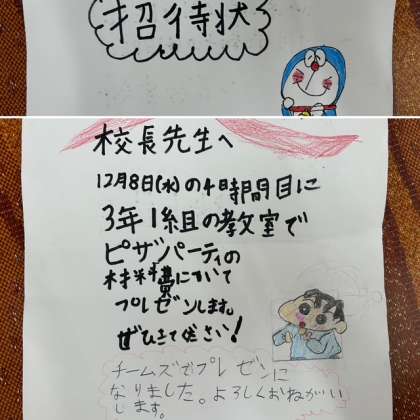 招待状
校長先生へ
12月8日(水)の4時間目に
3年1組の教室で
ピザパーティの
材料費について
プレゼンします。
ぜひきてください!
チームズでプレゼンに
なりました。よろしくおねがいし
します。